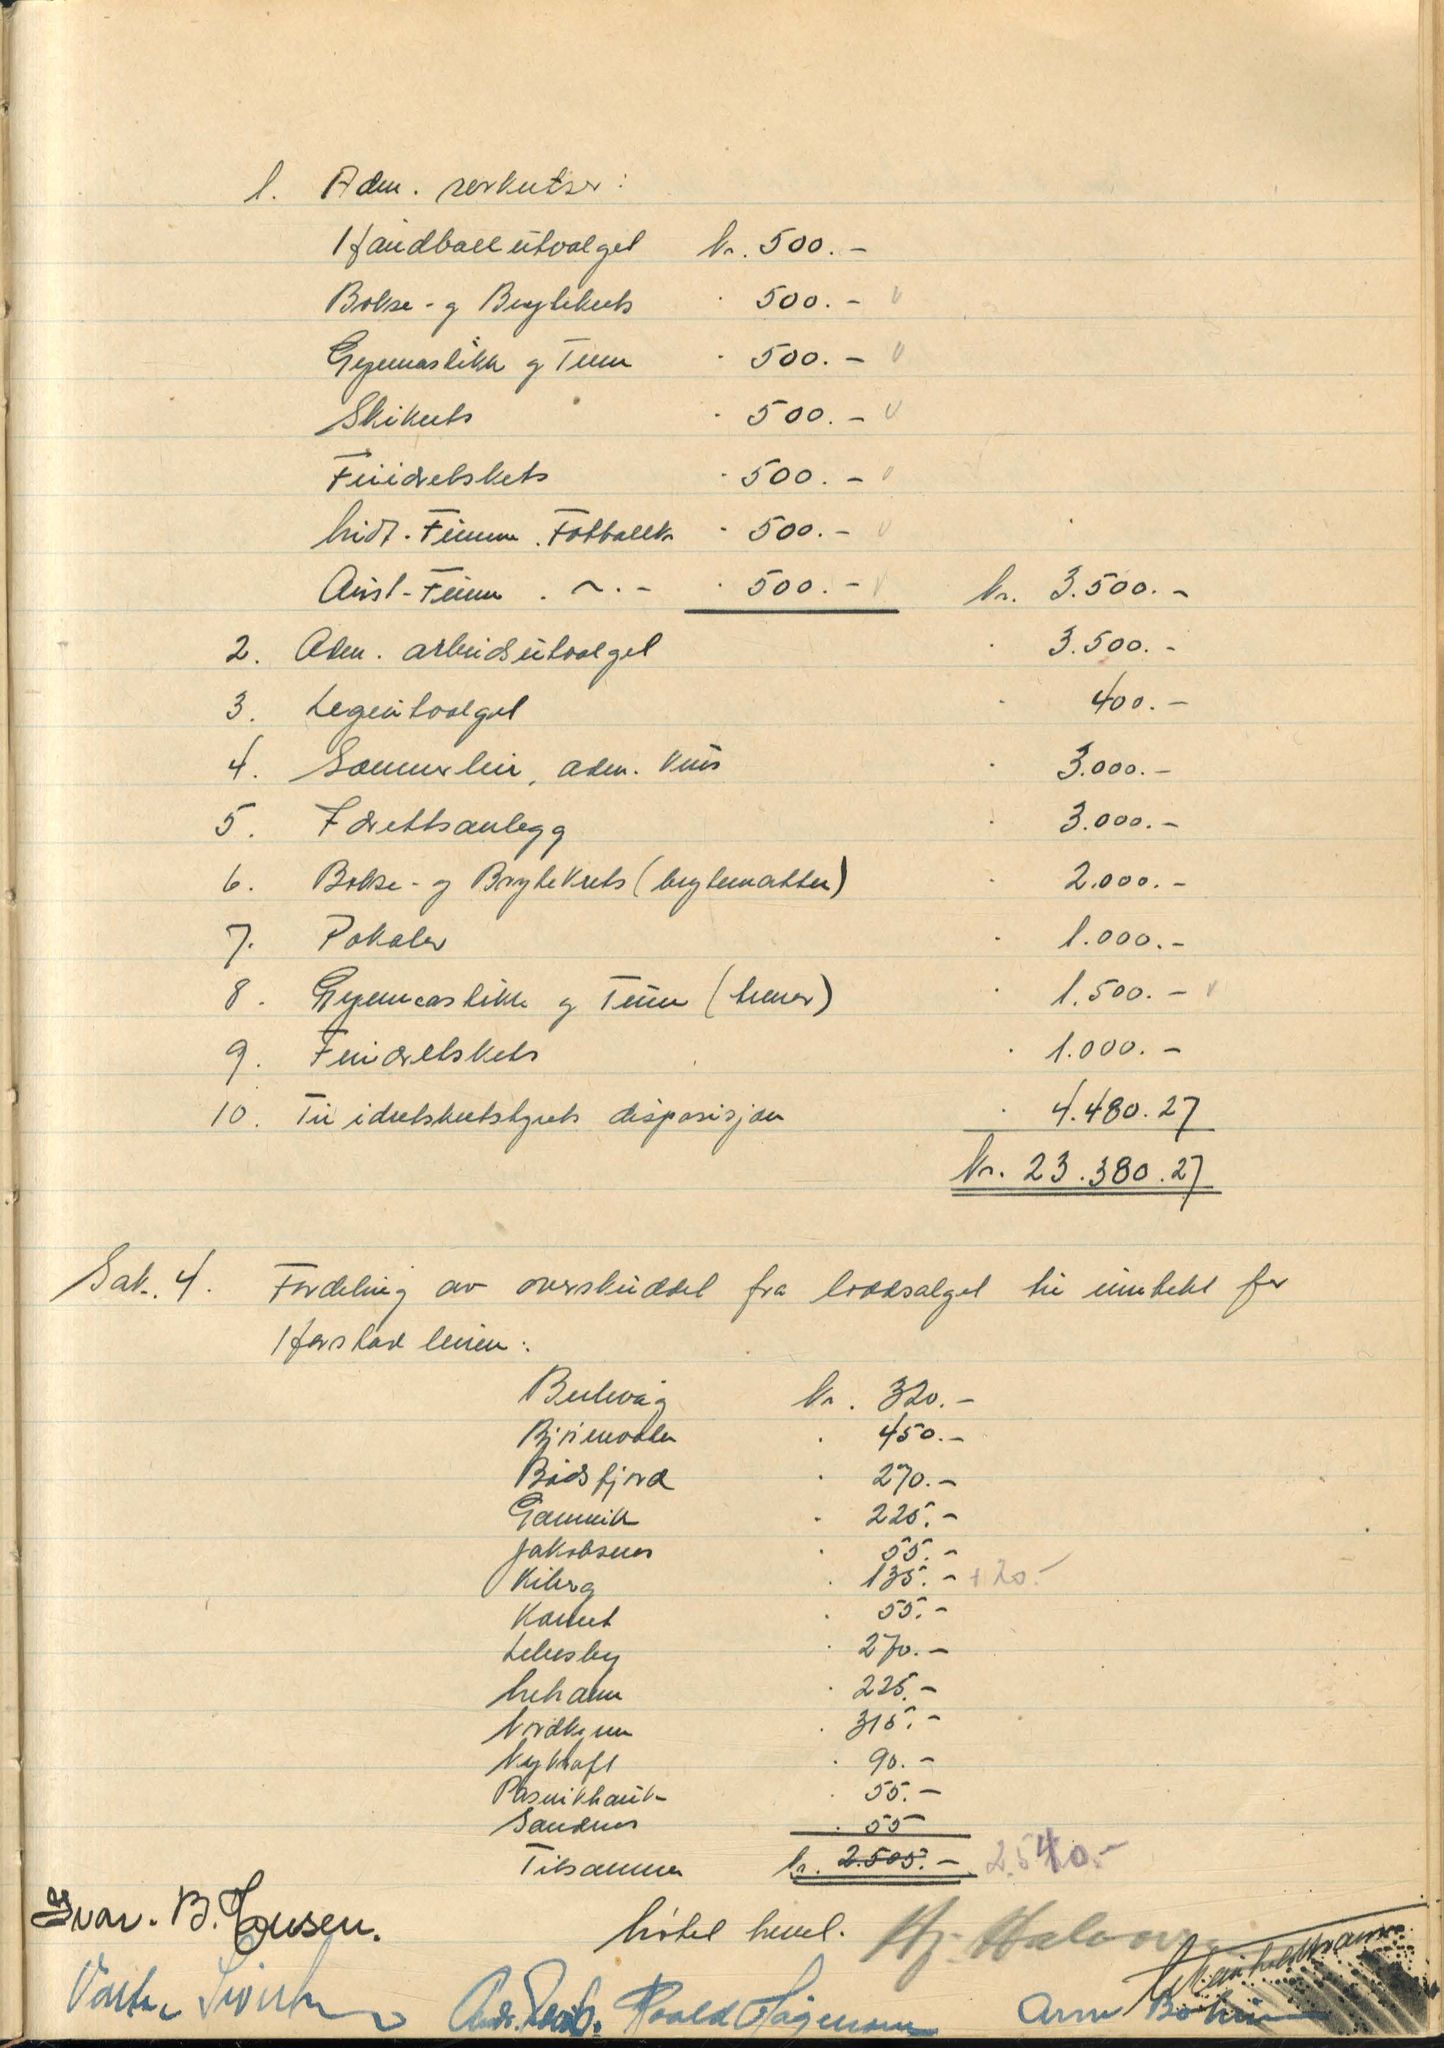 1. Adm. særkretser:
Håndballutvalget kr. 500.-
Bokse- og Brytekrets · 500.- v
Gymnastikk og Turn · 500.- v
Skikrets · 500.- v
Friidretskrets · 500.- v
Midt-Finnm. Fotballkr. · 500.- v
Aust-Finnm. - " - · 500.- v kr. 3.500.-
2. Adm. arbeidsutvalget · 3.500.-
3. Legeutvalget · 400.-
4. Sommerleir, adm. kurs · 3.000.-
5. Idrettsanlegg · 3.000.-
6. Bokse- og Brytekrets (brytematter) · 2.000.-
7. Pokaler · 1.000.-
8. Gymnastikk og Turn (trener) · 1.500.- v
9. Friidretskrets · 1.000.-
10. Til idretskretsstyrets disposisjon · 4.480.27
kr. 23.380.27
Sak. 4. Fordeling av overskuddet fra loddsalget til inntekt for
Harstad leiren:
Berlevåg kr. 320.-
Bjørnevatn · 450.-
Båtsfjord · 270.-
Gamvik · 225.-
Jakobsnes · 55.-
Kiberg · 135.- + 20.-
Karnet · 55.-
Lebesby · 270.-
Mehamn · 225.-
Nordkynn · 315.-
Nykraft · 90.-
Pasvikhauk · 55.-
Sandnes · 55
Tilsammen kr. 2.505.- 2.540.-
Møtet hevet.
Ivar. B.
Roald
Arne